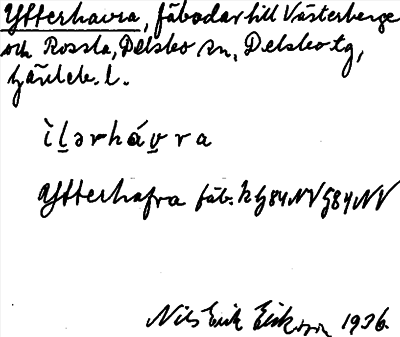 Ytterhavra, fäbodar till Västerberge
och Rossla, Delsbo sn, Delsbo tg,
Gävleb. l.
ìl̲ərháv̲ra
Ytterhafra fäb. k G84NV G84NV
Nils Erik Eriksson 1936.